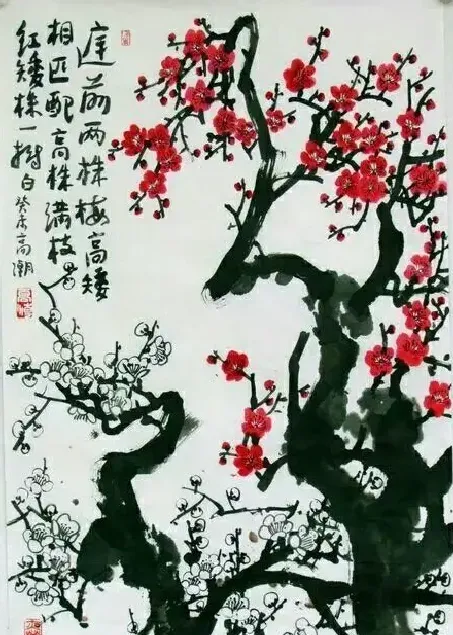 庭前两株梅高矮
相匹配高株满枝
红矮株一树白癸未高潮